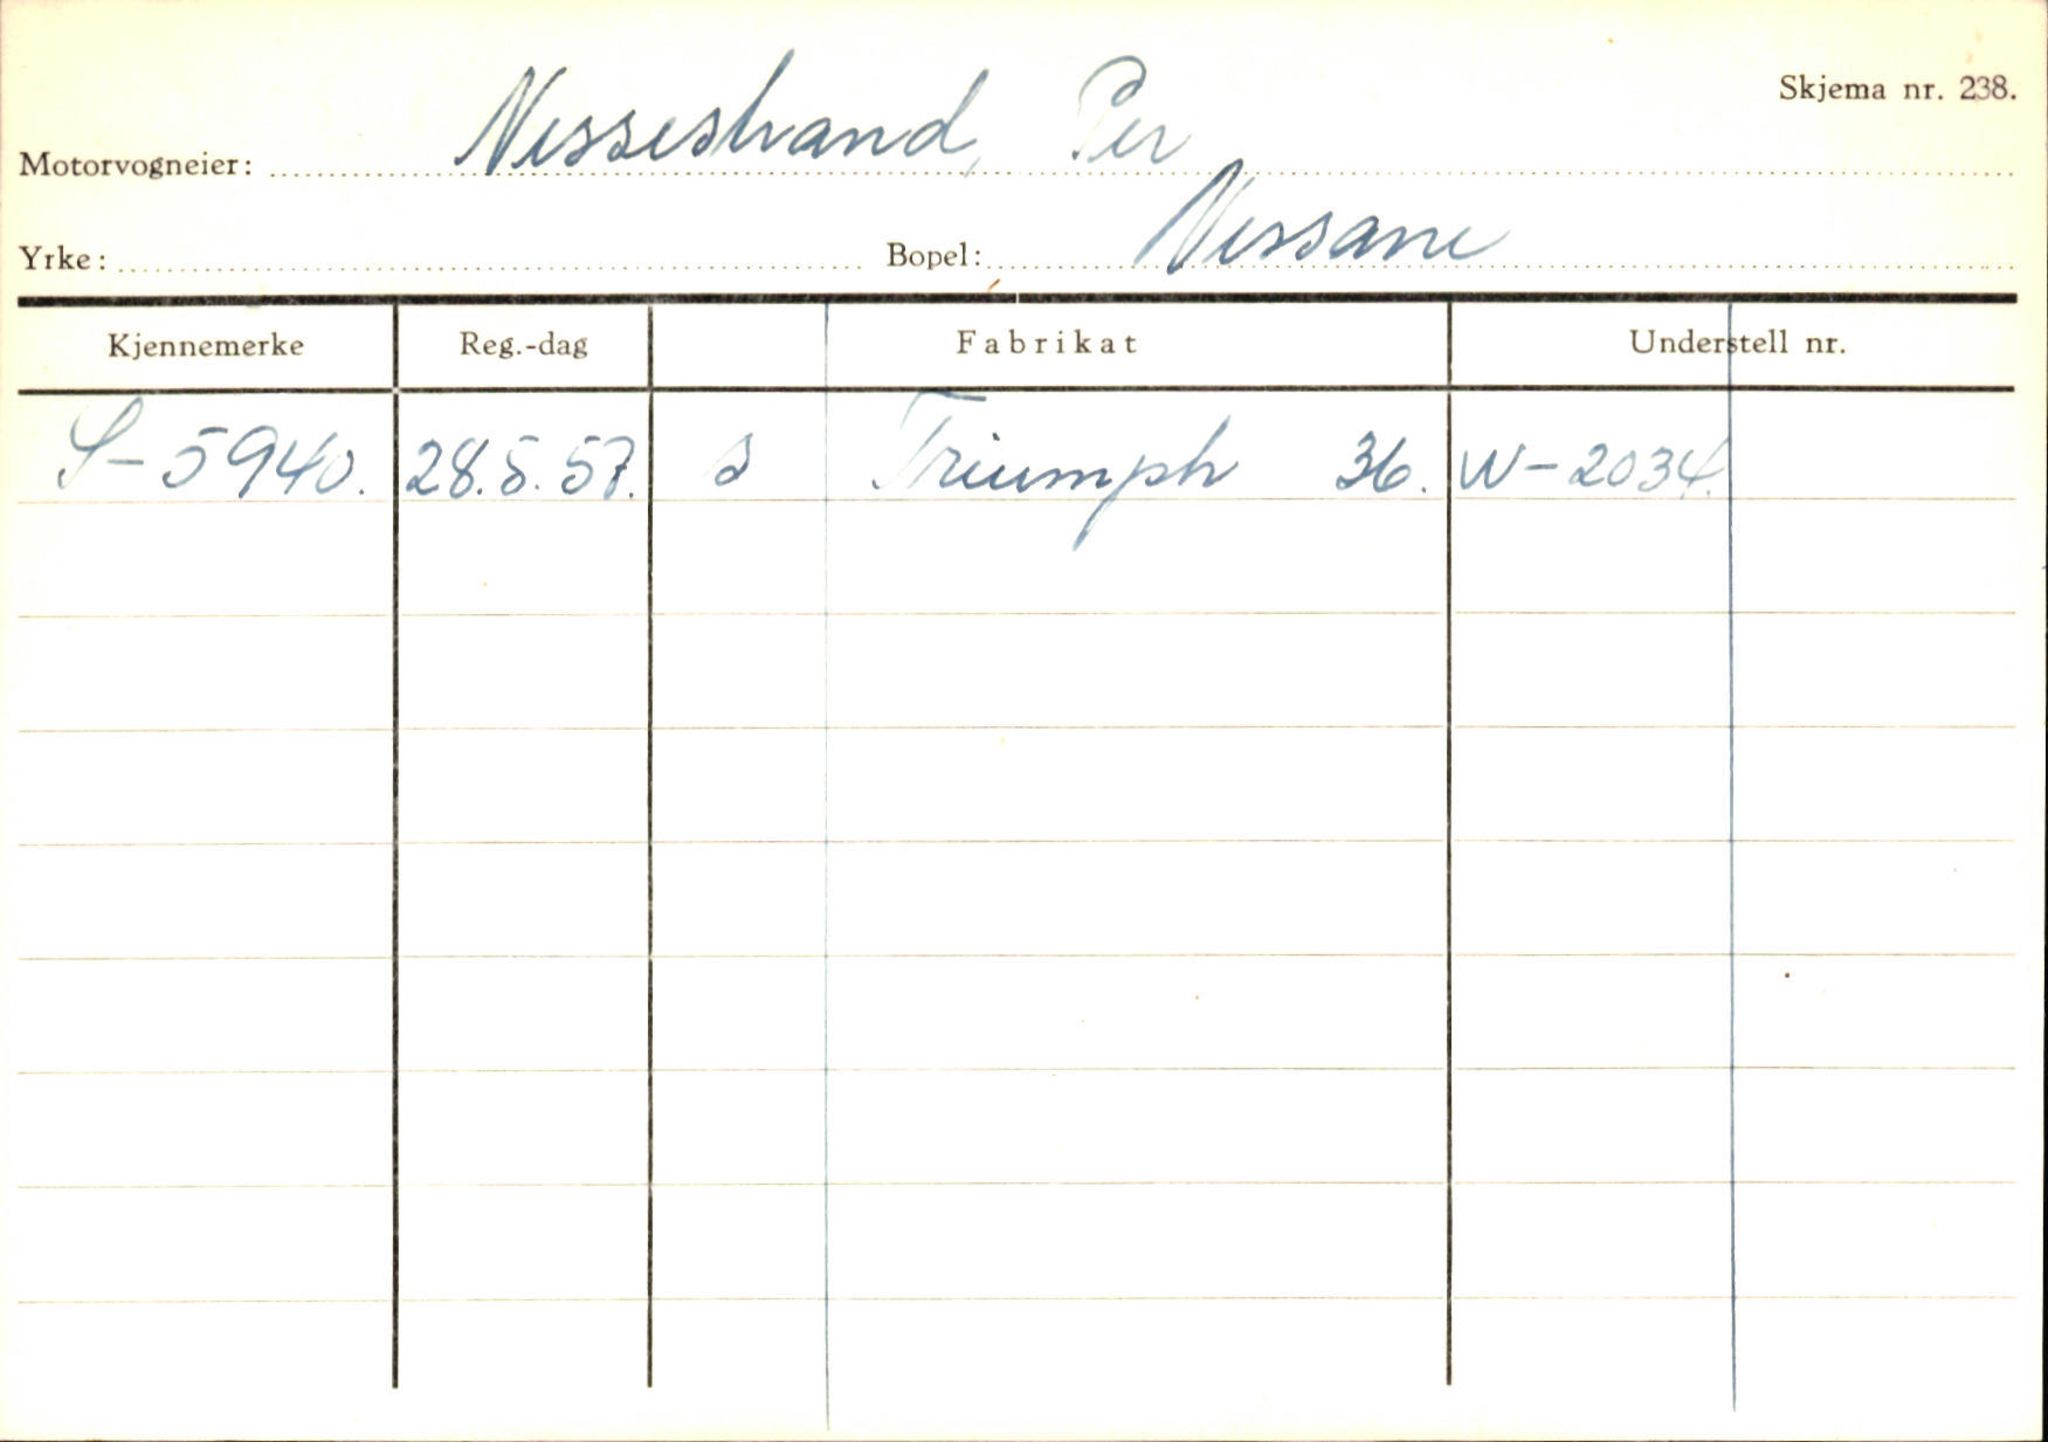 Skjema nr. 238.
Motorvogneier: Nessestrand, Per
Yrke: Bopel: Nessane
Kjennemerke Reg.-dag Fabrikat Understell nr.
S-5940. 28.5.57. s Triumph 36. W-2034.